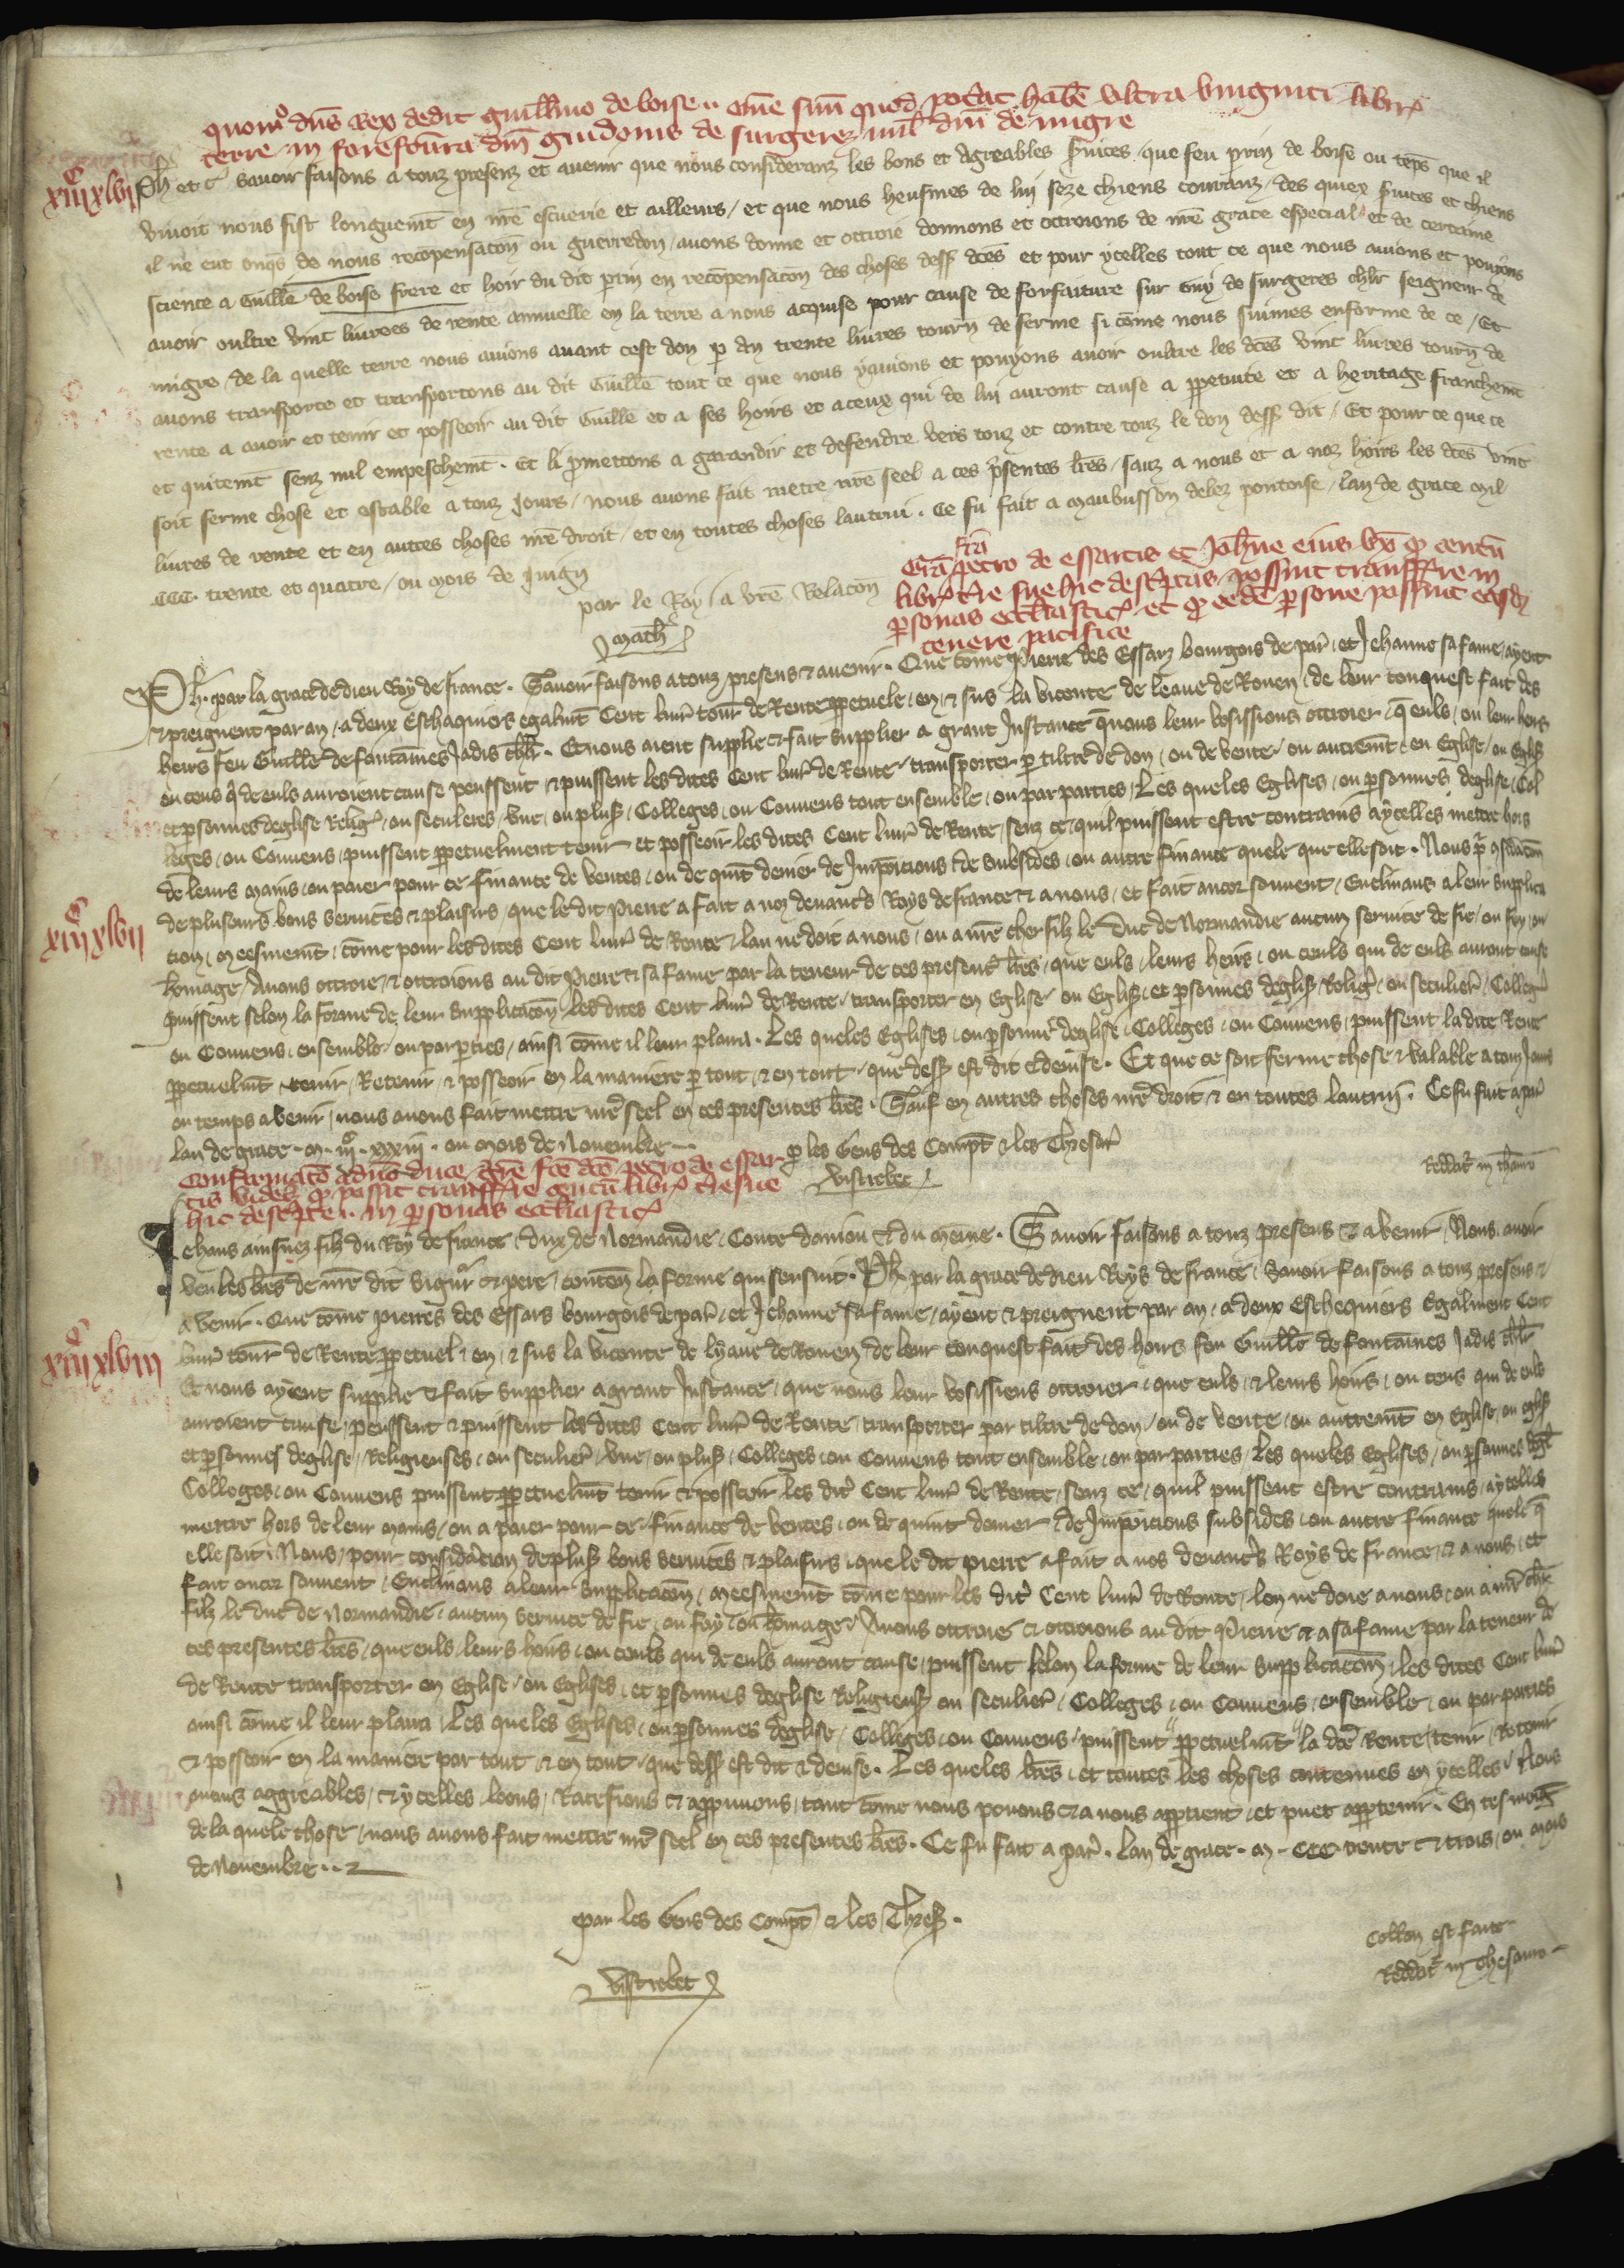 quomo dns Rex dedit guillmo de boise .. ome suu quod potat habe ultra viginti libr
terre in forefcura dni guidonis de surgeres mil dni de migre
xiiiᶜ xlvi
Ph et c savoir faisons a touz presenz et avenir que nous consideranz les bons et agreables svices que feu prin de boise ou teps que il
vivoit nous fist longuemt en nre escuerie et ailleurs / et que nous heusmes de lui seze chiens couranz / des quiex svices et chiens
il ne eut onqs de nous recopensacon ou guerredon / avons donne et ottroie donnons et ottroions de nre grace especial et de certaine
science a Guille de boise frere et hoir du dit prin en recopensacon des choses dess dces et pour ycelles tout ce que nous avions et povyons
avoir oultre vint livrees de rente annuelle en la terre a nous acquise pour cause de forfaiture sur Guy de surgeres chlr seigneur de
migre / de la quelle terre nous avions avant cest don p an trente livres tourn de ferme si come nous suimes enforme de ce / Et
avons transporte et transportons au dit Guille tout ce que nous y avions et povyons avoir oultre les dces vint livres tourn de
rente a avoir et tenir et posseoir au dit Guille et a ses hoirs et a ceux qui de lui auront cause a ppetuite et a heritage franchemt
et quitemt senz nul empeschemt . Et li pmettons a garandir et defendre vers touz et contre touz le don dess dit / Et pour ce que ce
soit ferme chose et estable a touz Jours / nous avons fait mettre nre seel a ces psentes lres / sauz a nous et a noz hoirs les dces vint
livres de rente et en autres choses nre droit / et en toutes choses lautrui . Ce fu fait a Maubuisson delez pontoise / lan de grace mil
CCC . trente et quatre / ou mois de Juign
par le Roy / a vre Relacon
Math
fca
Gra petro de essartis et Johne eius ux q centu
libr t re sue hic descptas possint transffrre in
psonas ecclesiastic et q eede psone possint easd
tenere pacifice
xiiiᶜ xlvii
Ph . par la grace de dieu Roy de france . Savoir faisons a touz presens & avenir . Que come Pierre des Essarz bourgois de par et Jehanne sa fame / ayent
& preignent par an / a deux Eschaquiers egalmt Cent livr tourn de Rente ppetuele / en & sus la viconte de leaue de Rouen / de leur conquest fait des
heirs feu Guille de fontaines Jadis chlr . Et nous aient supplie & fait supplier a grant Instance q nous leur vosissions ottroier / q euls / ou leur heirs
ou ceus q de euls auroient cause peussent & puissent les dites Cent livr de Rente transporter p tiltre de don / ou de vente / ou autremt en Eglise / ou Egliss
et psonnes deglise Relig / ou seculeres / une / ou pluss / Colleges / ou Convens tout ensemble / ou par parties / Les queles Eglises / ou psonnes deglise / Col
leges / ou Convens / puissent ppetuelment tenir et posseoir les dites Cent livr de Rente / senz ce quil puissent estre contrains a ycelles mettre hors
de leurs mains / ou paier pour ce finance de ventes / ou de quint denier de Impoicions / de subsides / ou autre finance quele que elle soit . Nous pr gsidacon
de pluseurs bons services & plaisirs / que le dit Pierre a fait a noz devanc Roys de france & a nous / et fait ancor souvent / Enclinans a leur supplica
tion / meesmemt / come pour les dites Cent livr de Rente / lan ne doit a nous / ou a nre cher filz le Duc de Normandie aucun service de fie / ou foy / ou
homage / Avons ottroie / & ottroions au dit Pierre & sa fame par la teneur de ces present lres / que euls / leurs heirs / ou ceuls qui de euls auront cause
puissent selon la forme de leur supplicacon / les dites Cent livr de Rente / transporter en Eglise ou Egliss et psonnes deglise Relig / ou seculier / Colleg
ou Convens / ensemble / ou par pties / ainsi come il leur plaira . Les queles Eglises / ou psonnes deglise / Colleges / ou Convens / puissent la dite Rente
ppetuelmt tenir / Retenir / & posseoir en la maniere p tout / & en tout / que dess est dit & devise . Et que ce soit ferme chose & valable a touz Jours
ou temps avenir / nous avons fait mettre nre seel en ces presentes lres . Sauf en autres choses nre droit / & en toutes lautruy . Ce fu fait a par
lan de grace . M . iiiᶜ . xxxiii . ou mois de Novembre .
p les Gens des Compt & les Thresor
Vistrebec
Reddit in thauro
Confirmato a dno duce gre fce dco petro de essar
tis videl q possit transffrre centu libr t re sue
hic descpte .. in psonas ecclesiastic
xiiiᶜ xlviii
Jehans ainsnez filz du Roy de france / dux de Normandie / Conte danjou & du maine . Savoir faisons a touz presens & avenir / Nous avoir
veu les lres de nre dit signur & pere / conten la forme qui sensuit . Ph . par la grace de dieu Roys de france / Savoir faisons a touz presens &
avenir . Que come pierres des Essars bourgois de par / et Jehanne sa fame / ayent & preignent par an / a deux Eschequiers Egalment Cent
livr tourn de Rente ppetuel / en / & sus la viconte de lyaue de Rouen de leur conquest fait des hoirs feu Guille de fontaines Jadis chlr
Et nous ayent supplie & fait supplier a grant Instance / que nous leur vosissiens ottroier / que euls / & leurs hoirs / ou ceus qui de euls
auroient cause / peussent & puissent les dites Cent livr de Rente / transporter par tiltre de don / ou de vente / ou autremt en Eglise / ou egliss
et psonnes deglise / Religieuses / ou seculier / une / ou pluss / Colleges / ou Convens tout ensemble / ou par parties / Les queles Eglises / ou psonnes degl
Colleges / ou Convens puissent ppetuelmt tenir & posseoir les dit Cent livr de Rente / senz ce / quil puissent estre contrains / a ycelles
mettre hors de leur mains / ou a paier pour ce / finance de ventes / ou de quint denier / de Impoicions subsides / ou autre finance quele q
elle soit . Nous / pour considacion de pluss bons services & plaisirs / que le dit pierre a fait a nos devancrs Roys de france / & a nous / et
fait encor souvent / Enclinans a leur supplicacon / meesmemt come pour les dit Cent livr de Rente / lon ne doie a nous / ou a nre chr
filz le duc de Normandie / aucun service de fie / ou foy / ou homage / Avons ottroie & ottroions au dit Pierre & a sa fame par la teneur de
ces presentes lres / que euls / leurs hoirs / ou ceuls qui de euls auront cause / puissent selon la forme de leur supplicacon / les dites Cent livr
de Rente transporter en Eglise / ou Eglises / et psonnes deglise Religieuss ou seculier / Colleges / ou Convens / ensemble / ou par parties
ainsi come il leur plaira / Les queles Eglises / ou psonnes deglise / Colleges / ou Convens / puissent ppetuelmt la dce Rente / tenir / Retenir
& posseoir en la maniere par tout / & en tout / que dess est dit & devise . Les queles lres / et toutes les choses contenues en ycelles / Nous
avons aggreables / & ycelles loons / Ratefions & appuvons / tant come nous povons & a nous apptient / et puet appartenir . En tesmoig
de la quele chose / nous avons fait mettre nre seel en ces presentes lres . Ce fu fait a par . Lan de grace . M . CCC . trente & trois / ou mois
de Novembre ..
par les Gens des Compt & les Thress .
Vistrebec
Collon est faite
Reddit in thesauro